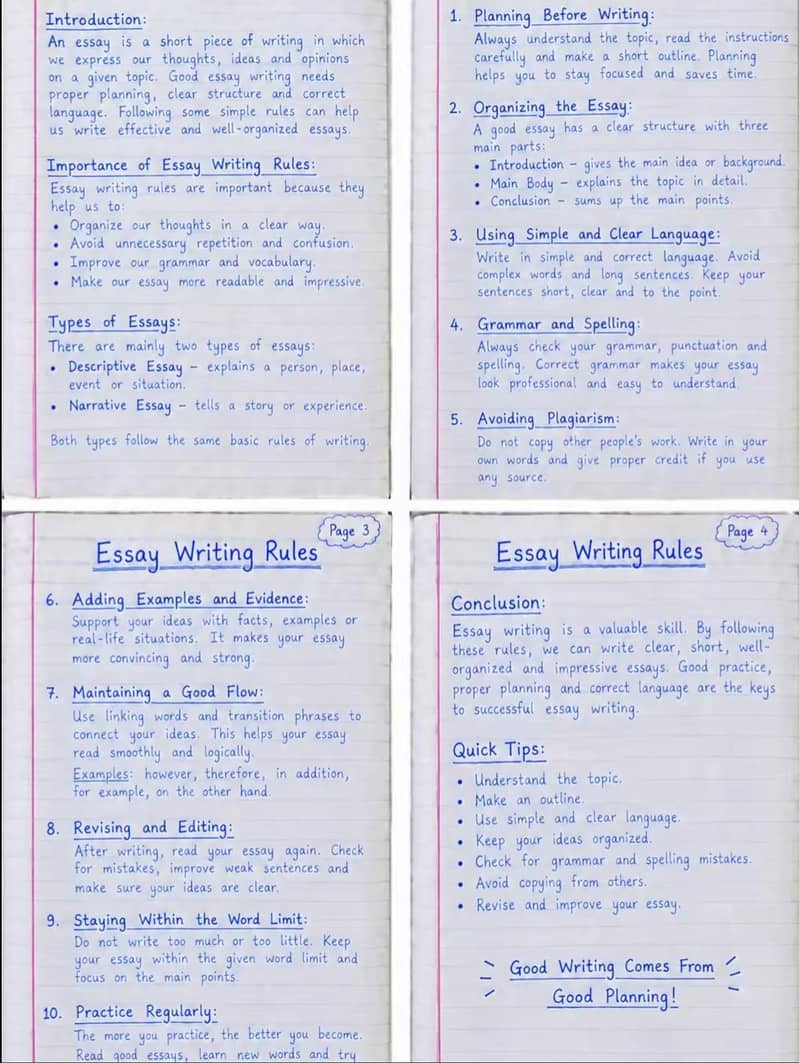 Introduction:
An essay is a short piece of writing in which
we express our thoughts, ideas and opinions
on a given topic. Good essay writing needs
proper planning, clear structure and correct
language. Following some simple rules can help
us write effective and well-organized essays.
Importance of Essay Writing Rules:
Essay writing rules are important because they
help us to:
• Organize our thoughts in a clear way.
• Avoid unnecessary repetition and confusion.
• Improve our grammar and vocabulary.
• Make our essay more readable and impressive.
Types of Essays:
There are mainly two types of essays:
• Descriptive Essay – explains a person, place,
event or situation.
• Narrative Essay – tells a story or experience.
Both types follow the same basic rules of writing.
1. Planning Before Writing:
Always understand the topic, read the instructions
carefully and make a short outline. Planning
helps you to stay focused and saves time.
2. Organizing the Essay:
A good essay has a clear structure with three
main parts:
• Introduction – gives the main idea or background.
• Main Body – explains the topic in detail.
• Conclusion – sums up the main points.
3. Using Simple and Clear Language:
Write in simple and correct language. Avoid
complex words and long sentences. Keep your
sentences short, clear and to the point.
4. Grammar and Spelling:
Always check your grammar, punctuation and
spelling. Correct grammar makes your essay
look professional and easy to understand.
5. Avoiding Plagiarism:
Do not copy other people's work. Write in your
own words and give proper credit if you use
any source.
Page 3
Essay Writing Rules
6. Adding Examples and Evidence:
Support your ideas with facts, examples or
real-life situations. It makes your essay
more convincing and strong.
7. Maintaining a Good Flow:
Use linking words and transition phrases to
connect your ideas. This helps your essay
read smoothly and logically.
Examples: however, therefore, in addition,
for example, on the other hand.
8. Revising and Editing:
After writing, read your essay again. Check
for mistakes, improve weak sentences and
make sure your ideas are clear.
9. Staying Within the Word Limit:
Do not write too much or too little. Keep
your essay within the given word limit and
focus on the main points.
10. Practice Regularly:
The more you practice, the better you become.
Read good essays, learn new words and try
Page 4
Essay Writing Rules
Conclusion:
Essay writing is a valuable skill. By following
these rules, we can write clear, short, well-
organized and impressive essays. Good practice,
proper planning and correct language are the keys
to successful essay writing.
Quick Tips:
• Understand the topic.
• Make an outline.
• Use simple and clear language.
• Keep your ideas organized.
• Check for grammar and spelling mistakes.
• Avoid copying from others.
• Revise and improve your essay.
Good Writing Comes From
Good Planning!